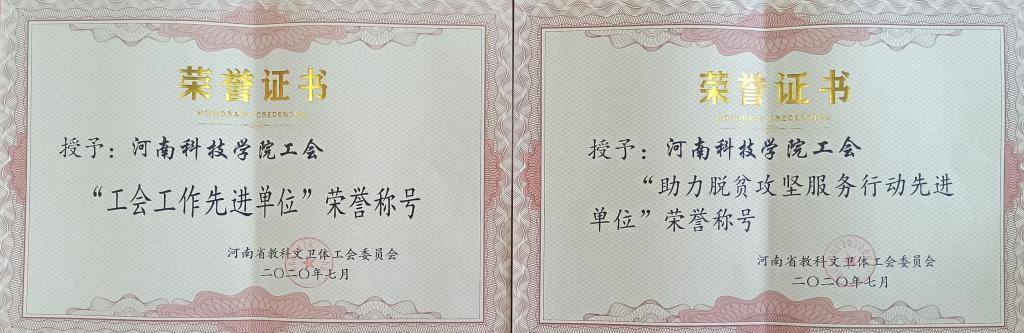 荣誉证书
HONORARY CREDENTIAL
授予：河南科技学院工会
“工会工作先进单位”荣誉称号
河南省教科文卫体工会委员会
二〇二〇年七月
荣誉证书
HONORARY CREDENTIAL
授予：河南科技学院工会
“助力脱贫攻坚服务行动先进
单位”荣誉称号
河南省教科文卫体工会委员会
二〇二〇年七月